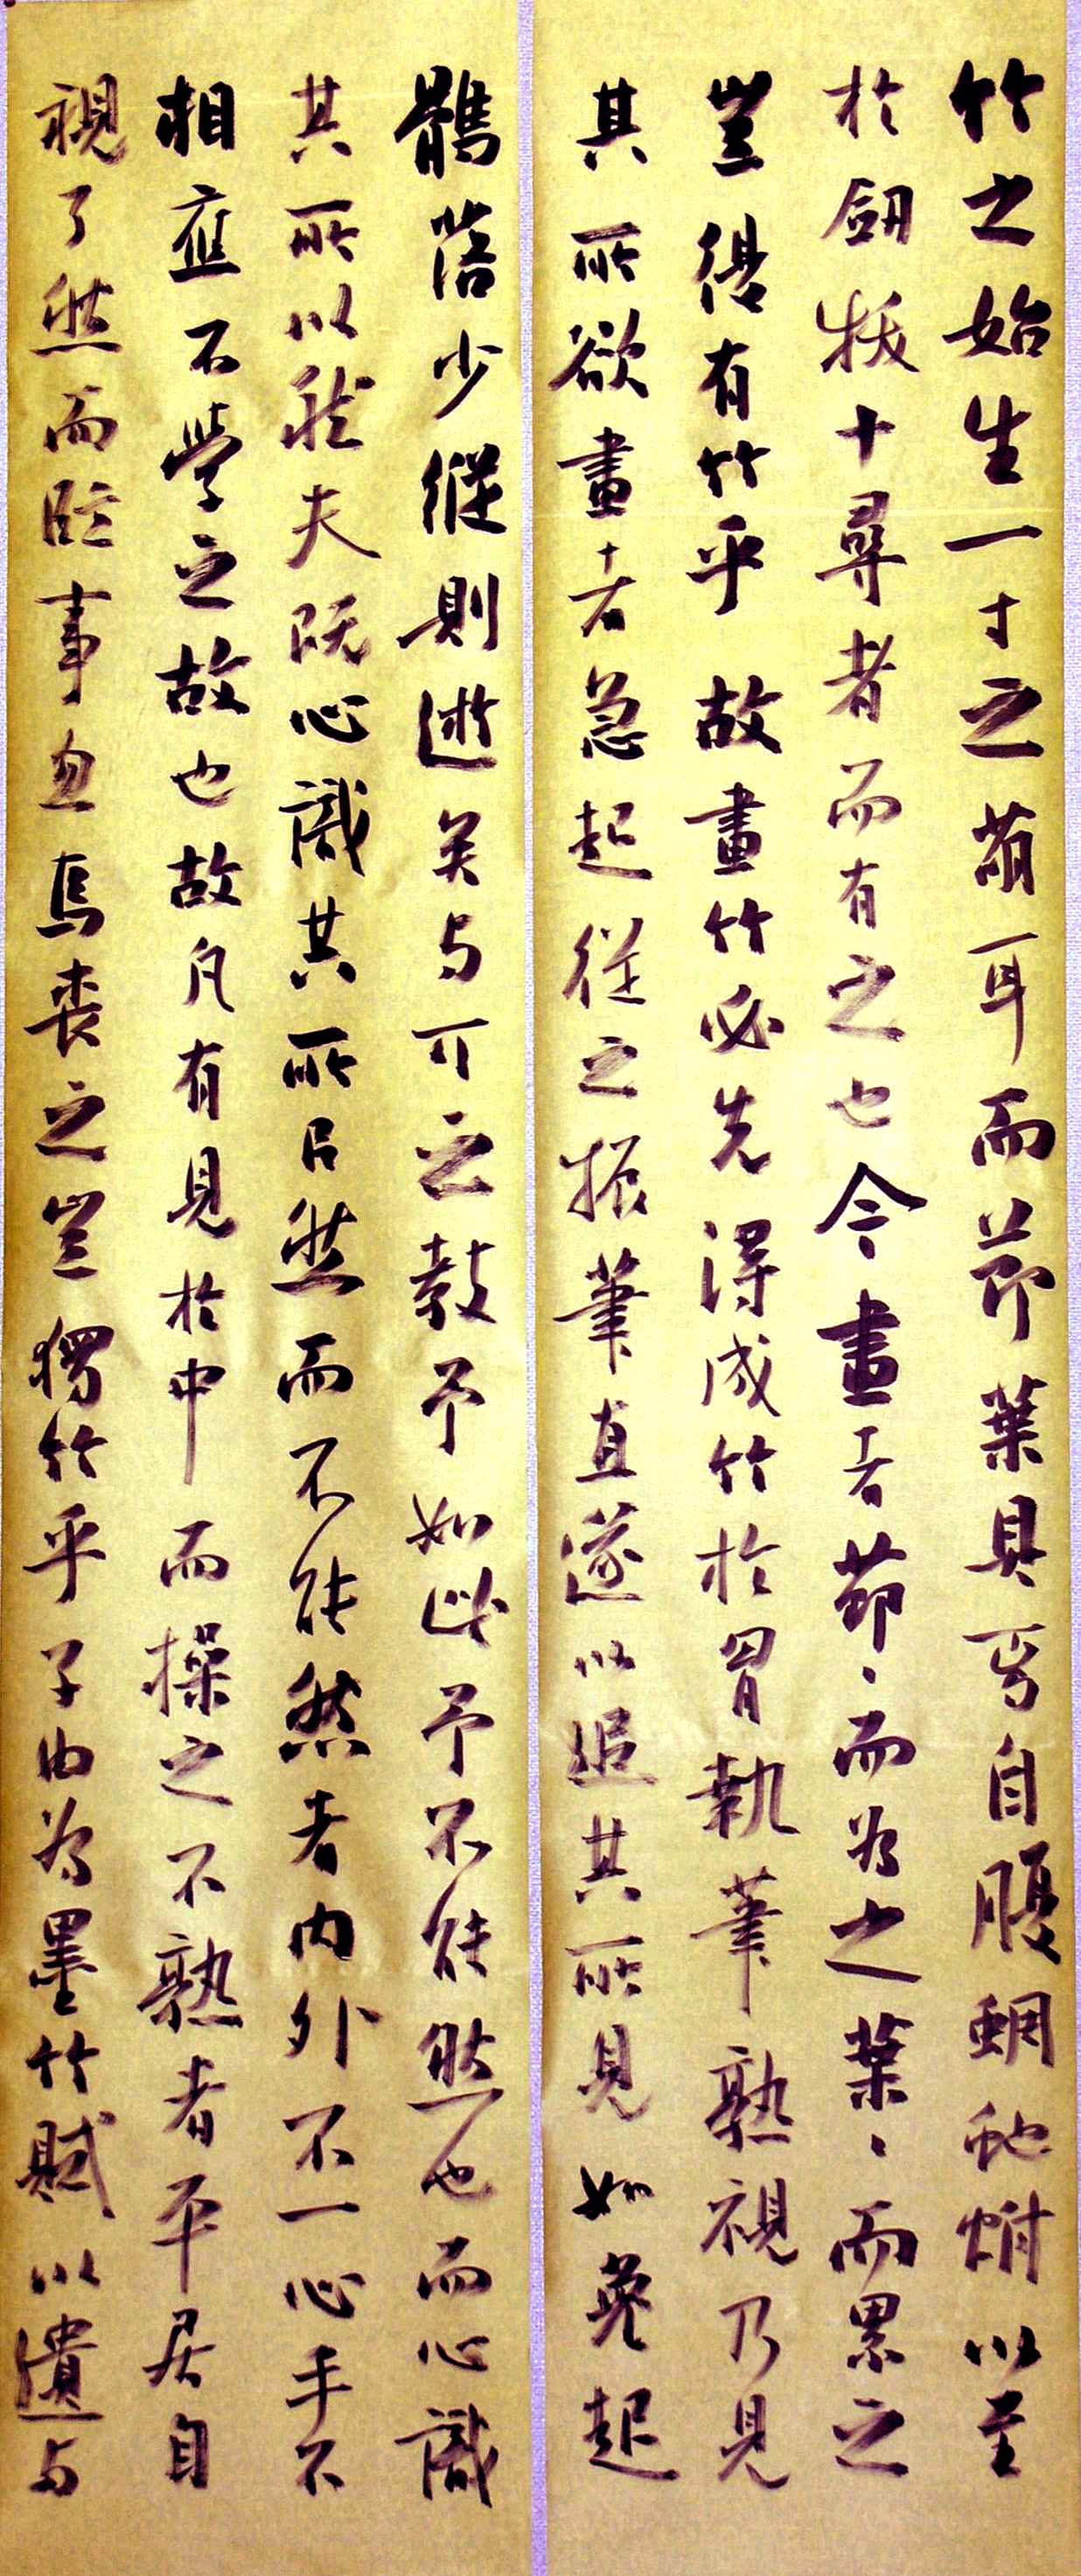 竹之始生一寸之萌耳而節葉具焉自腹蜩蛇蚹以至
於劒拔十尋者而有之也今畫者節、而為之葉、而累之
豈復有竹乎故畫竹必先得成竹於胷執筆熟視乃見
其所欲畫者急起從之振筆直遂以追其所見如兔起
鶻落少縱則逝矣與可之教予如此予不能然也而心識
其所以然夫既心識其所以然而不能然者內外不一心手不
相應不學之故也故凡有見於中而操之不熟者平居自
視了然而臨事忽焉喪之豈獨竹乎子由為墨竹賦以遺與